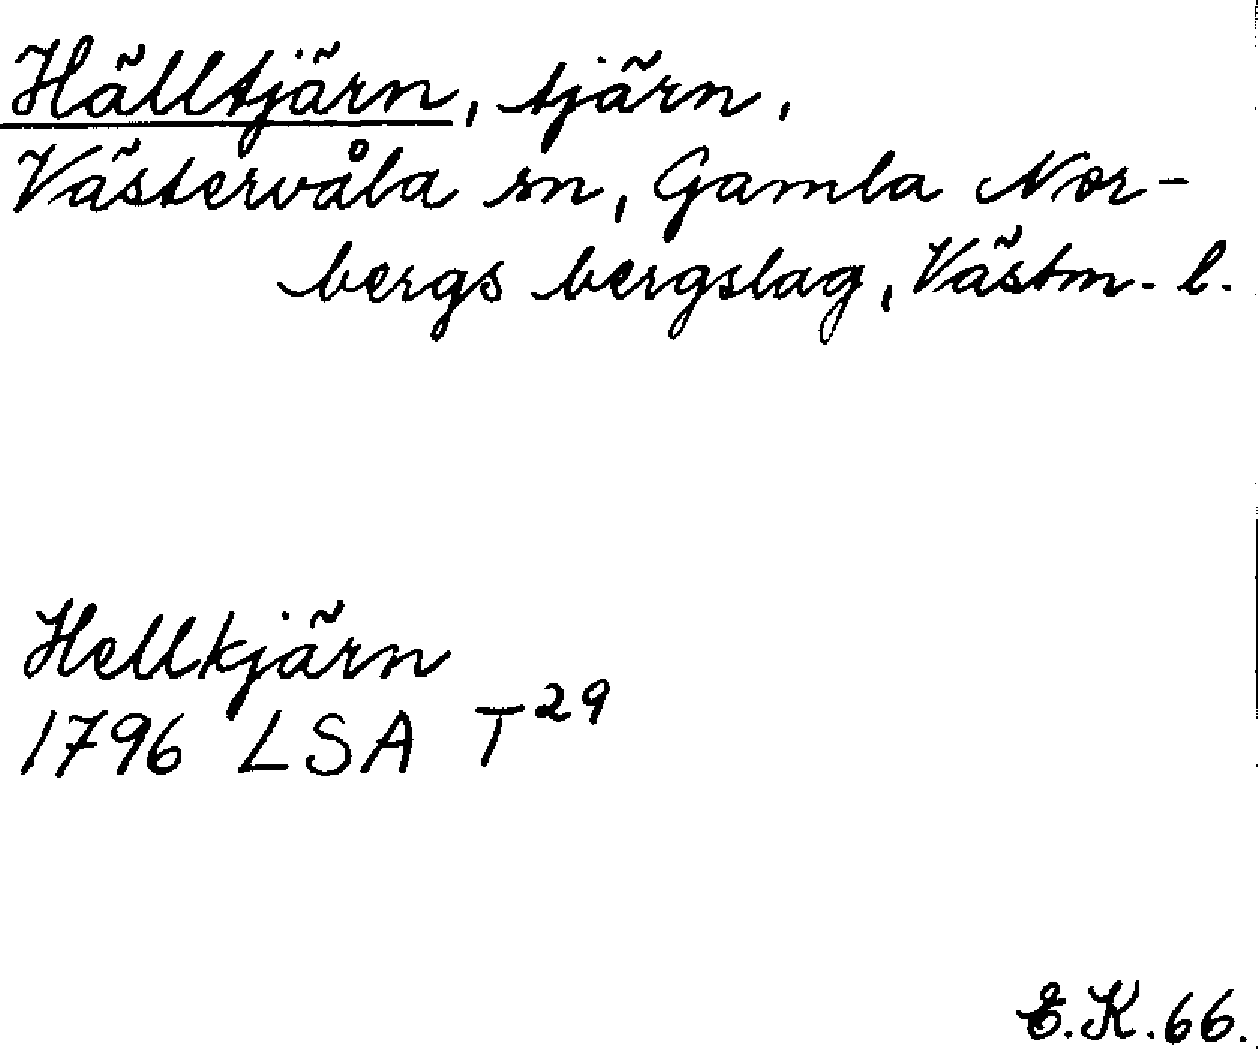 Hälltjärn, tjärn,
Västervåla sn, Gamla Nor-
bergs bergslag, Västm. l.
Hellkjärn
1796 LSA T29
E.K.66.